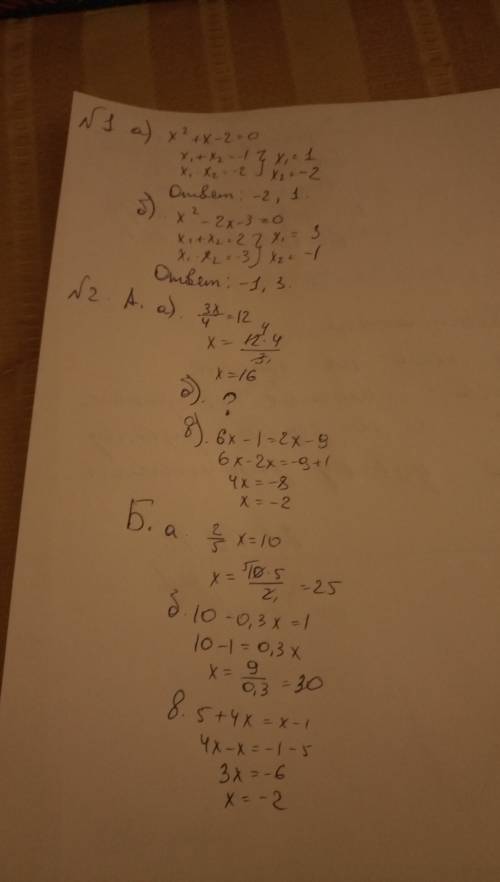 №1 а) x² + x - 2 = 0
x₁ + x₂ = -1 } x₁ = 1
x₁ · x₂ = -2 } x₂ = -2
Ответ: -2, 1.
б) x² - 2x - 3 = 0
x₁ + x₂ = 2 } x₁ = 3
x₁ · x₂ = -3 } x₂ = -1
Ответ: -1, 3.
№2. А. а). 3x/4 = 12
x = 12⁴·4/3₁
x = 16
б). ?
в). 6x - 1 = 2x - 9
6x - 2x = -9 + 1
4x = -8
x = -2
Б. а. 2/5 x = 10
x = ⁵10·5/2₁ = 25
б. 10 - 0,3x = 1
10 - 1 = 0,3x
x = 9/0,3 = 30
в. 5 + 4x = x - 1
4x - x = -1 - 5
3x = -6
x = -2